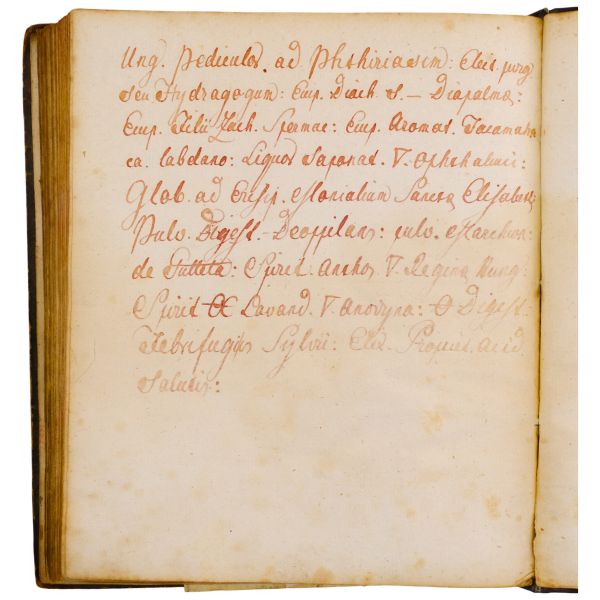 Ung. Pediculor. ad Phthiriasim: Elect. purg
seu Hydragogum: Emp. Diach S. – Diapalma:
Emp. Filii Zach. Spermac: Emp. Aromat. Tacamaha
ca. labdano: Liquor Saponat. ∇. Ophthalmic:
Glob. ad Erisip. Monialium Sanctæ Elisabeth:
Pulv. Digest. – Deoppilans: pulv.
de Gutteta: Spirit. Anthos ∇. Regina Hung:
Spirit Lavand. ∇. Anodyna: Digest.
Febrifugus Sylvii: Elix. Propriet. acid
Salutis: